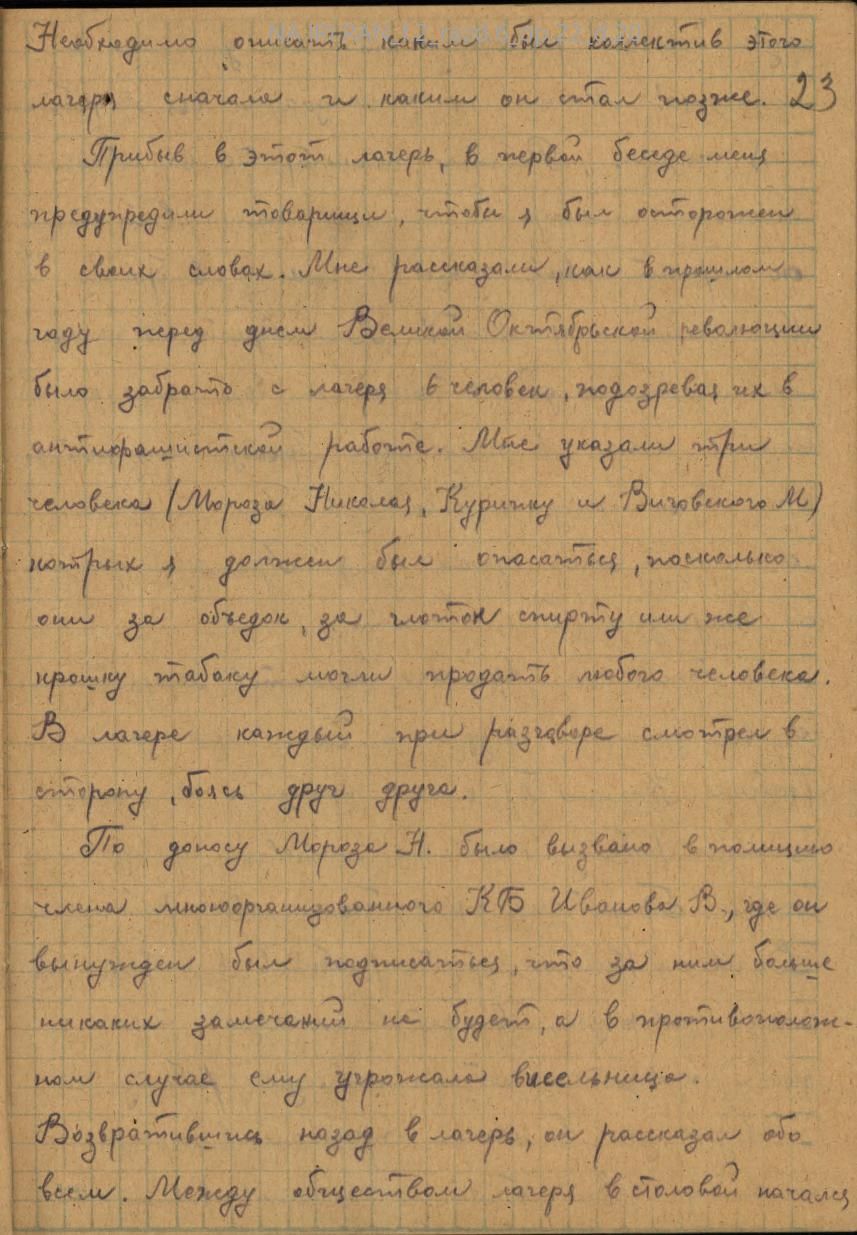 Необходимо описать каким был коллектив этого
лагеря сначала и каким он стал позже. 23
Прибыв в этот лагерь, в первой беседе меня
предупредили товарищи, чтобы я был осторожен
в своих словах. Мне рассказали, как в прошлом
году перед днем Великой Октябрьской революции
было забрато с лагеря 6 человек, подозревая их в
антифашистской работе. Мне указали три
человека (Мороза Николая, Куричку и Виговского М)
которых я должен был опасаться, поскольку
они за объедок, за глоток спирту или же
крошку табаку могли продать любого человека.
В лагере каждый при разговоре смотрел в
сторону, боясь друг друга.
По доносу Мороза Н. было вызвано в полицию
члена мноюорганизованного КБ Иванова В., где он
вынужден был подписаться, что за ним больше
никаких замечаний не будет, а в противополож-
ном случае ему угрожала висельница.
Возвратившись назад в лагерь, он рассказал обо
всем. Между обществом лагеря в столовой начался